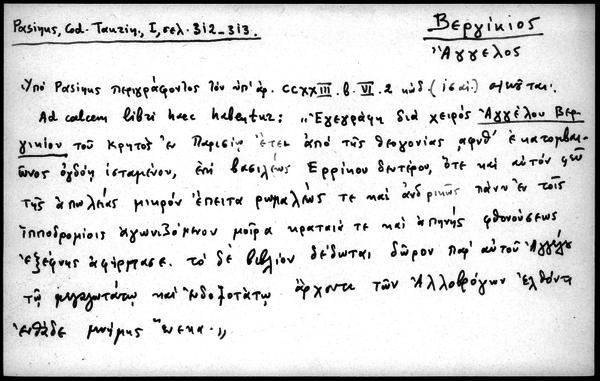 Pasinus, Cod. Taurin., I, σελ. 312-313.
Βεργίκιος
Ἄγγελος
Ὑπὸ Pasinus περιγράφοντος τὸν ὑπ' ἀρ. CCXXIII. b. VI. 2 κώδ.
Ad calcem libri haec habentur: „Ἐγεγράφη διὰ χειρὸς Ἀγγέλου Βερ-
γικίου τοῦ Κρητὸς ἐν Παρισίῳ ἔτει ἀπὸ τῆς θεογονίας αφνθ' ἑκατομβαι-
ῶνος ὀγδόῃ ἱσταμένου, ἐπὶ βασιλέως Ἐρρίκου δευτέρου, ὅτε καὶ αὐτὸν
τῆς ἀπωλείας μικρὸν ἔπειτα ῥωμαλέως τε καὶ ἀνδρικῆς πάνυ ἐν τοῖς
ἱπποδρομίοις ἀγωνιζόμενον μοῖρα κραταιά τε καὶ ἀπηνὴς φθονούσεως
ἐξέφνης ἀφήρπασε. τὸ δὲ βιβλίον δέδωται δῶρον παρ' αὐτοῦ Ἀγγέλου
τῷ μεγαλωτάτῳ καὶ ἐνδοξοτάτῳ ἄρχοντι τῶν Ἀλλοβρόγων ἐλθόντι
ἐνθάδε μνήμης ἕνεκα.„